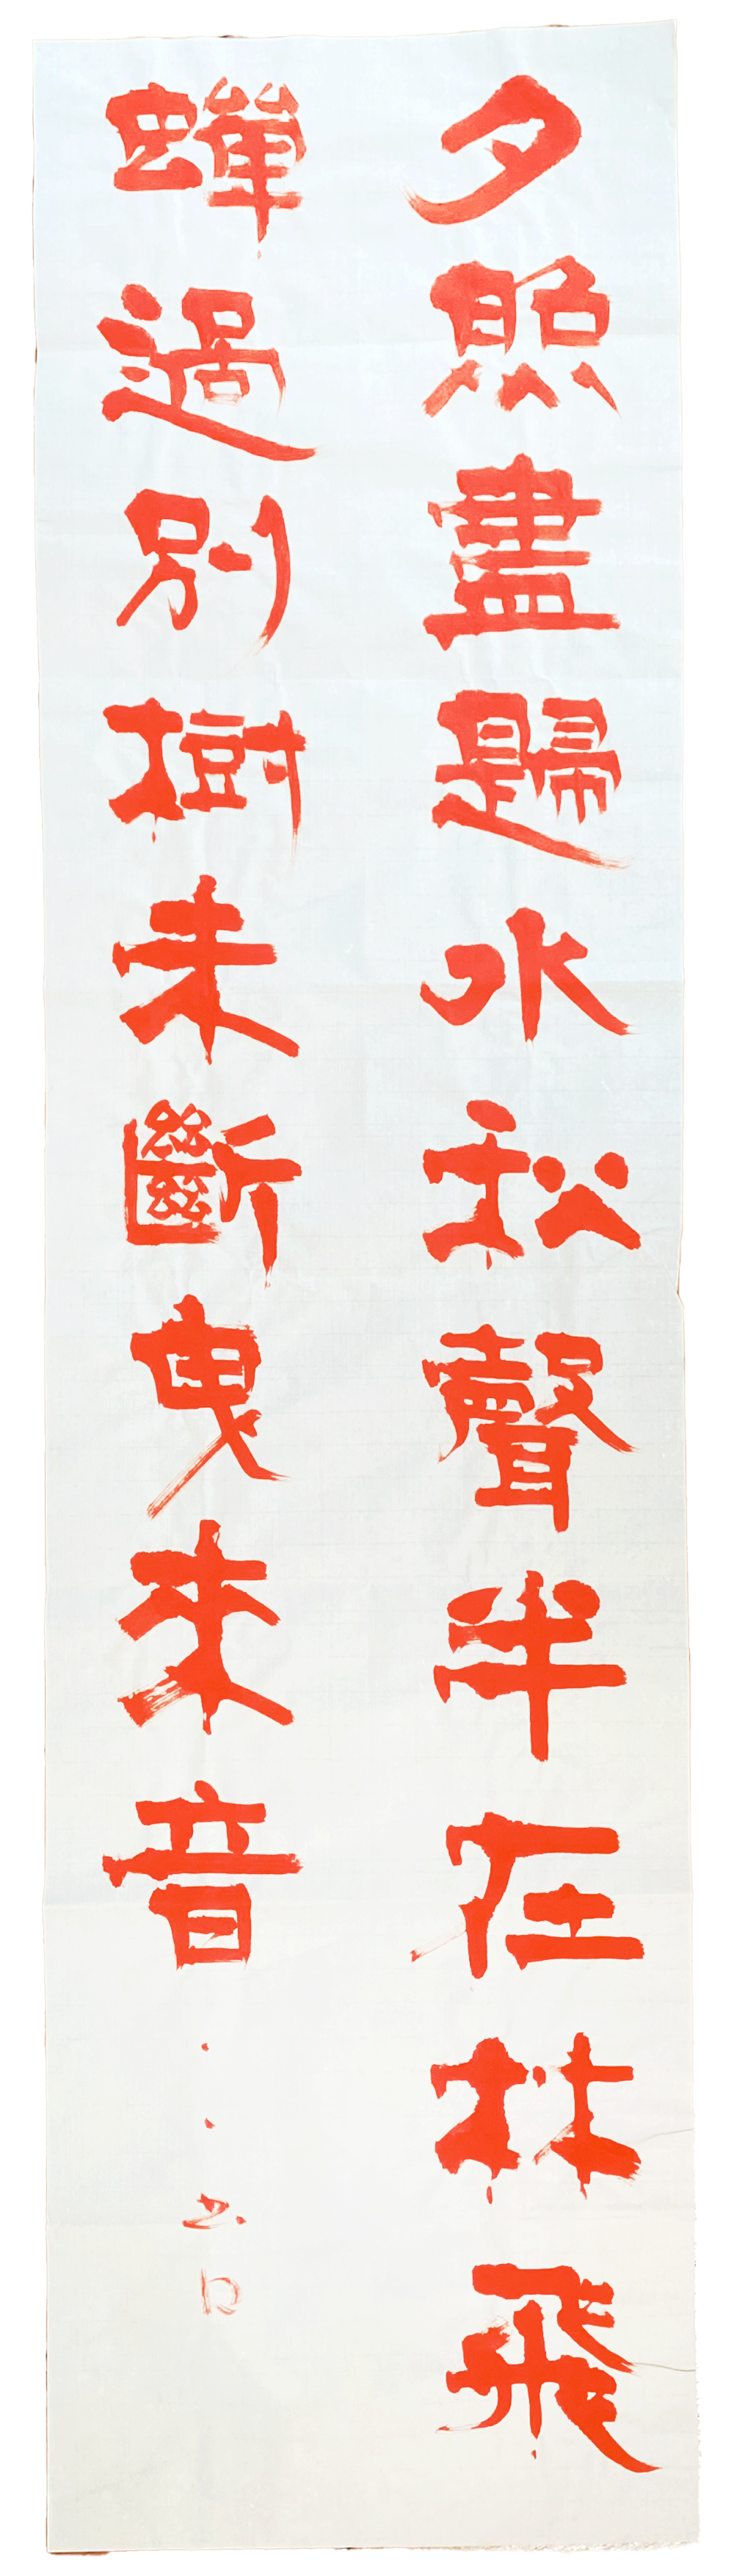 夕照盡歸水秋聲半在林飛
蟬過別樹未斷曳來音